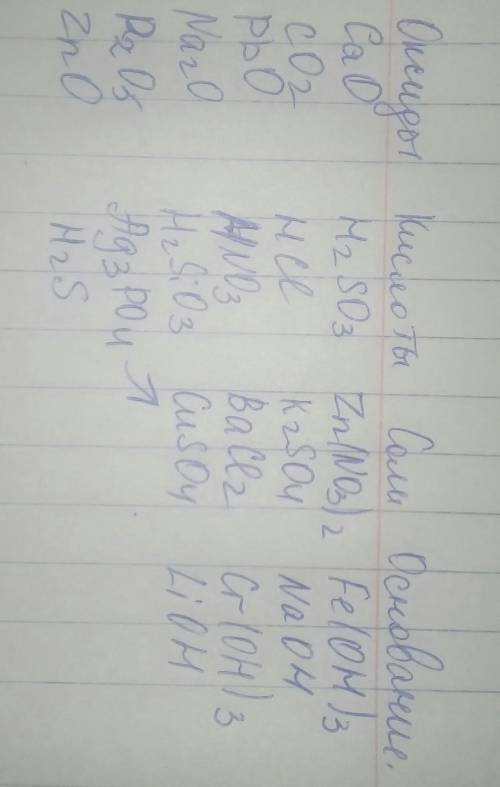 Оксиды Кислоты Соли Основание.
CaO H2SO3 Zn(NO3)2 Fe(OH)3
CO2 HCl K2SO4 NaOH
PbO HNO3 BaCl2 Cr(OH)3
Na2O H2SiO3 CuSO4 LiOH
P2O5 Ag3PO4 ↗
ZnO H2S